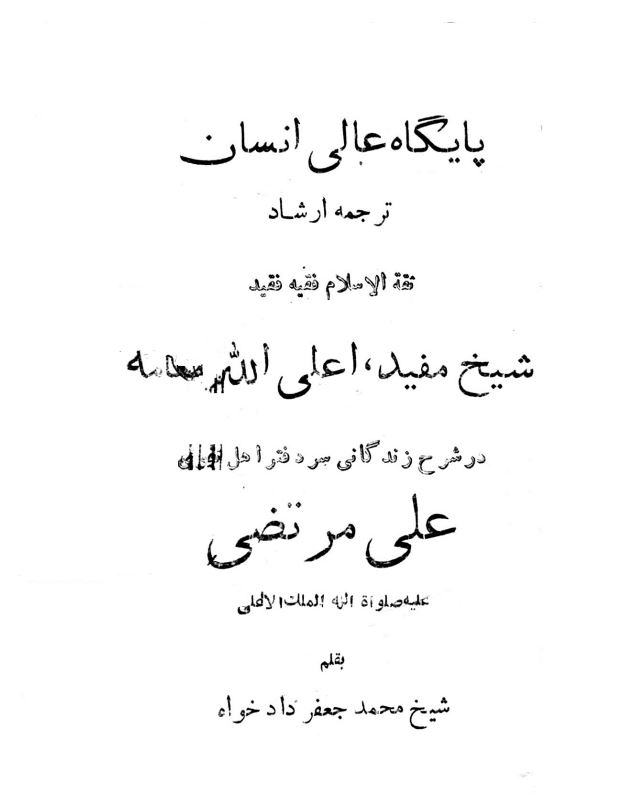 پایگاه عالی انسان
ترجمه ارشاد
ثقة الاسلام فقیه فقید
شیخ مفید، اعلی الله مقامه
در شرح زندگانی سر دفتر اهل
علی مرتضی
علیه صلواة الله الملک الاعلی
بقلم
شیخ محمد جعفر دادخواه